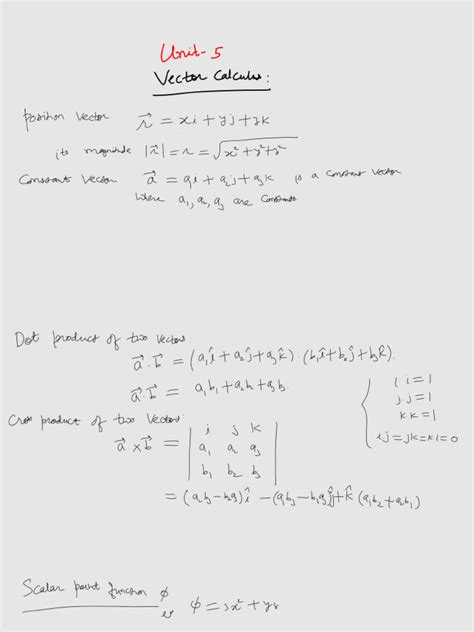 Unit-5
Vector Calculus:
position vector r⃗ = xi + yj + zk
its magnitude |r⃗| = r = √x²+y²+z²
Constant Vector a⃗ = a₁i + a₂j + a₃k is a constant vector
where a₁, a₂, a₃ are constants
Dot product of two vectors
a⃗.b⃗ = (a₁î + a₂ĵ + a₃k̂).(b₁î + b₂ĵ + b₃k̂).
a⃗.b⃗ = a₁b₁ + a₂b₂ + a₃b₃.
i.i=1
j.j=1
k.k=1
i.j=j.k=k.i=0
Cross product of two vectors:
a⃗ × b⃗ = | i j k
a₁ a₂ a₃
b₁ b₂ b₃ |
= (a₂b₃ - b₂a₃)î - (a₁b₃ - b₁a₃)ĵ + k̂(a₁b₂ + a₂b₁)
Scalar point function ϕ
ϕ = 3x² + yz